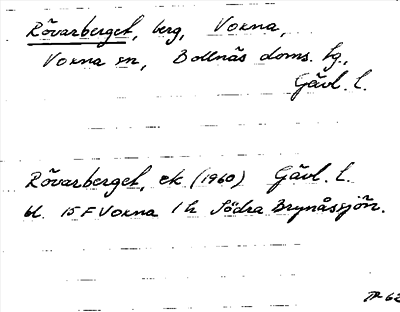 Rövarberget, berg, Voxna,
Voxna sn, Bollnäs doms. tg.,
Gävl. l.
Rövarberget, ek. (1960) Gävl. l.
bl. 15 F Voxna 1 h Södra Brynåssjön.
62